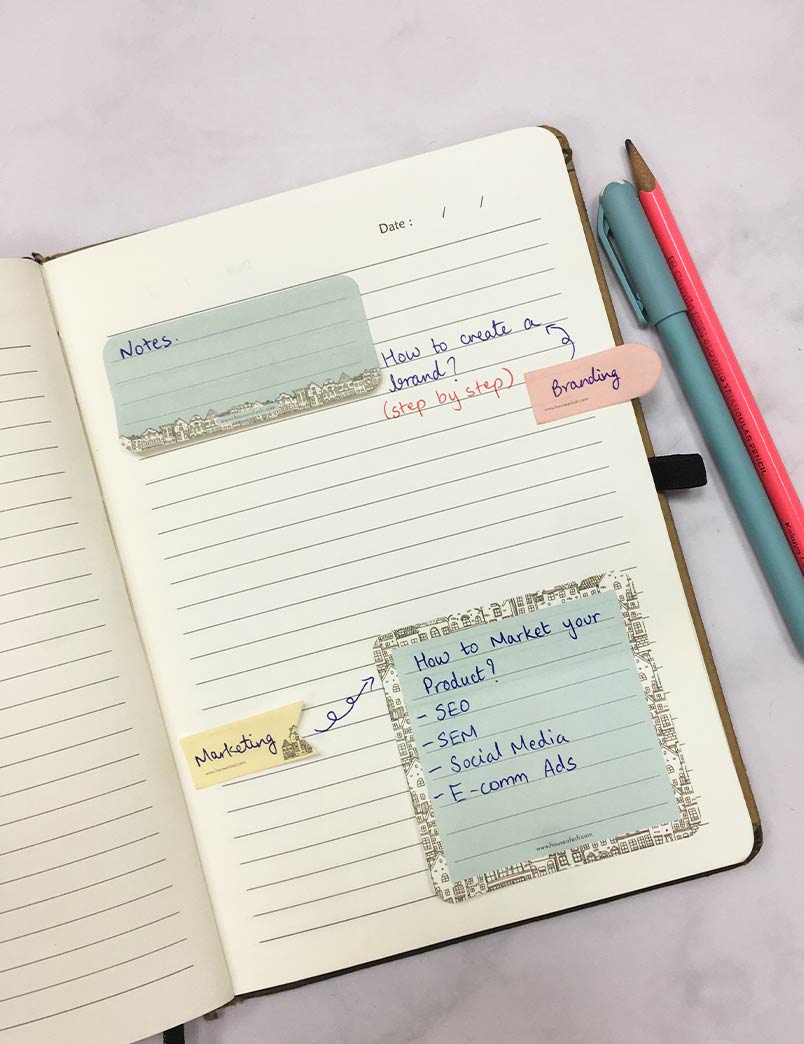 Date : / /
Notes.
www.houseofedi.com
How to create a
brand?
(step by step)
Branding
www.houseofedi.com
How to Market your
Product?
- SEO
- SEM
- Social Media
- E-comm Ads
www.houseofedi.com
Marketing
www.houseofedi.com
TRIANGULAR PENCIL